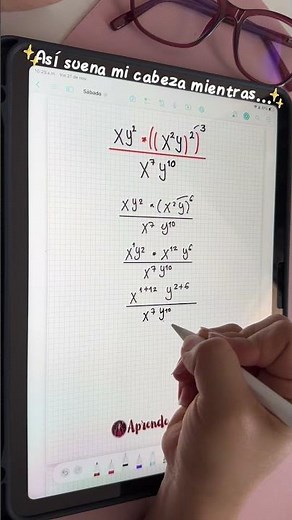 ✨Así suena mi cabeza mientras...✨
Sábado
xy² · ((x²y)²)³
x⁷y¹⁰
xy² · (x²y)⁶
x⁷ y¹⁰
x¹y² · x¹² y⁶
x⁷ y¹⁰
x¹⁺¹² y²⁺⁶
x⁷ y¹⁰
Aprende